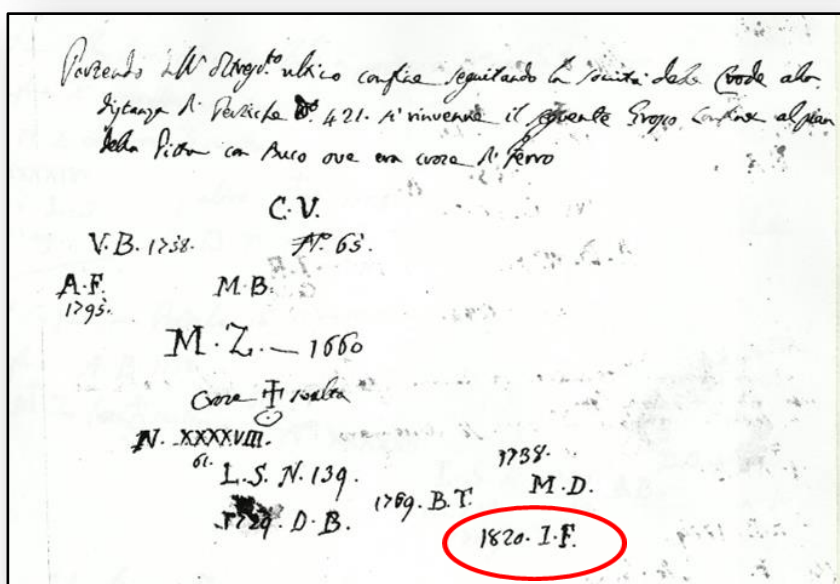 Partendo dall' ultimo confine seguitando la sumità delle Crode alla
distanza di Pertiche N.º 421. si rinvenne il seguente Gropo Confine al pian
della Pietra con Buco ove era croce di ferro
C. V.
V. B. 1738. Nº 65.
A. F. M. B.
1795.
M. Z. — 1660
Croce scolta
N. XXXXVIII.
61. L. S. N. 139. 1738.
1769. B. T. M. D.
1729. D. B.
1820. I. F.